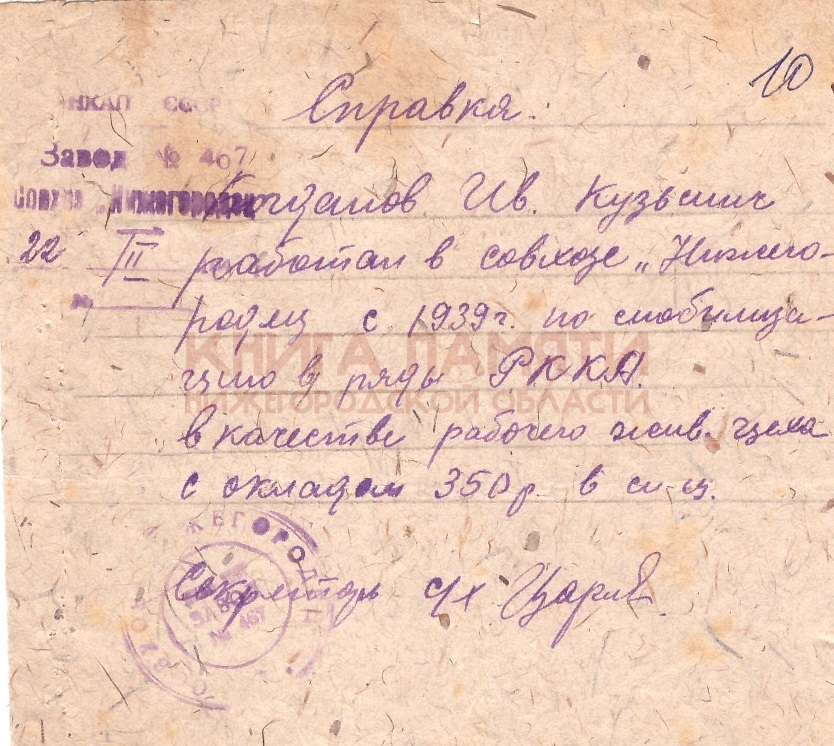 10
Справка.
НКАП СССР
Завод № 467
Совхоз „Нижегородец
Богданов Ив. Кузьмич
22 II работал в совхозе „Нижего-
№
родец с 1939г. по мобилиза-
КНИГА ПАМЯТИ
цию в ряды РККА.
НИЖЕГОРОДСКОЙ ОБЛАСТИ
в качестве рабочего жив. цеха
с окладом 350р в м-ц.
Секретарь с/х
ЗАВОД
№ 467